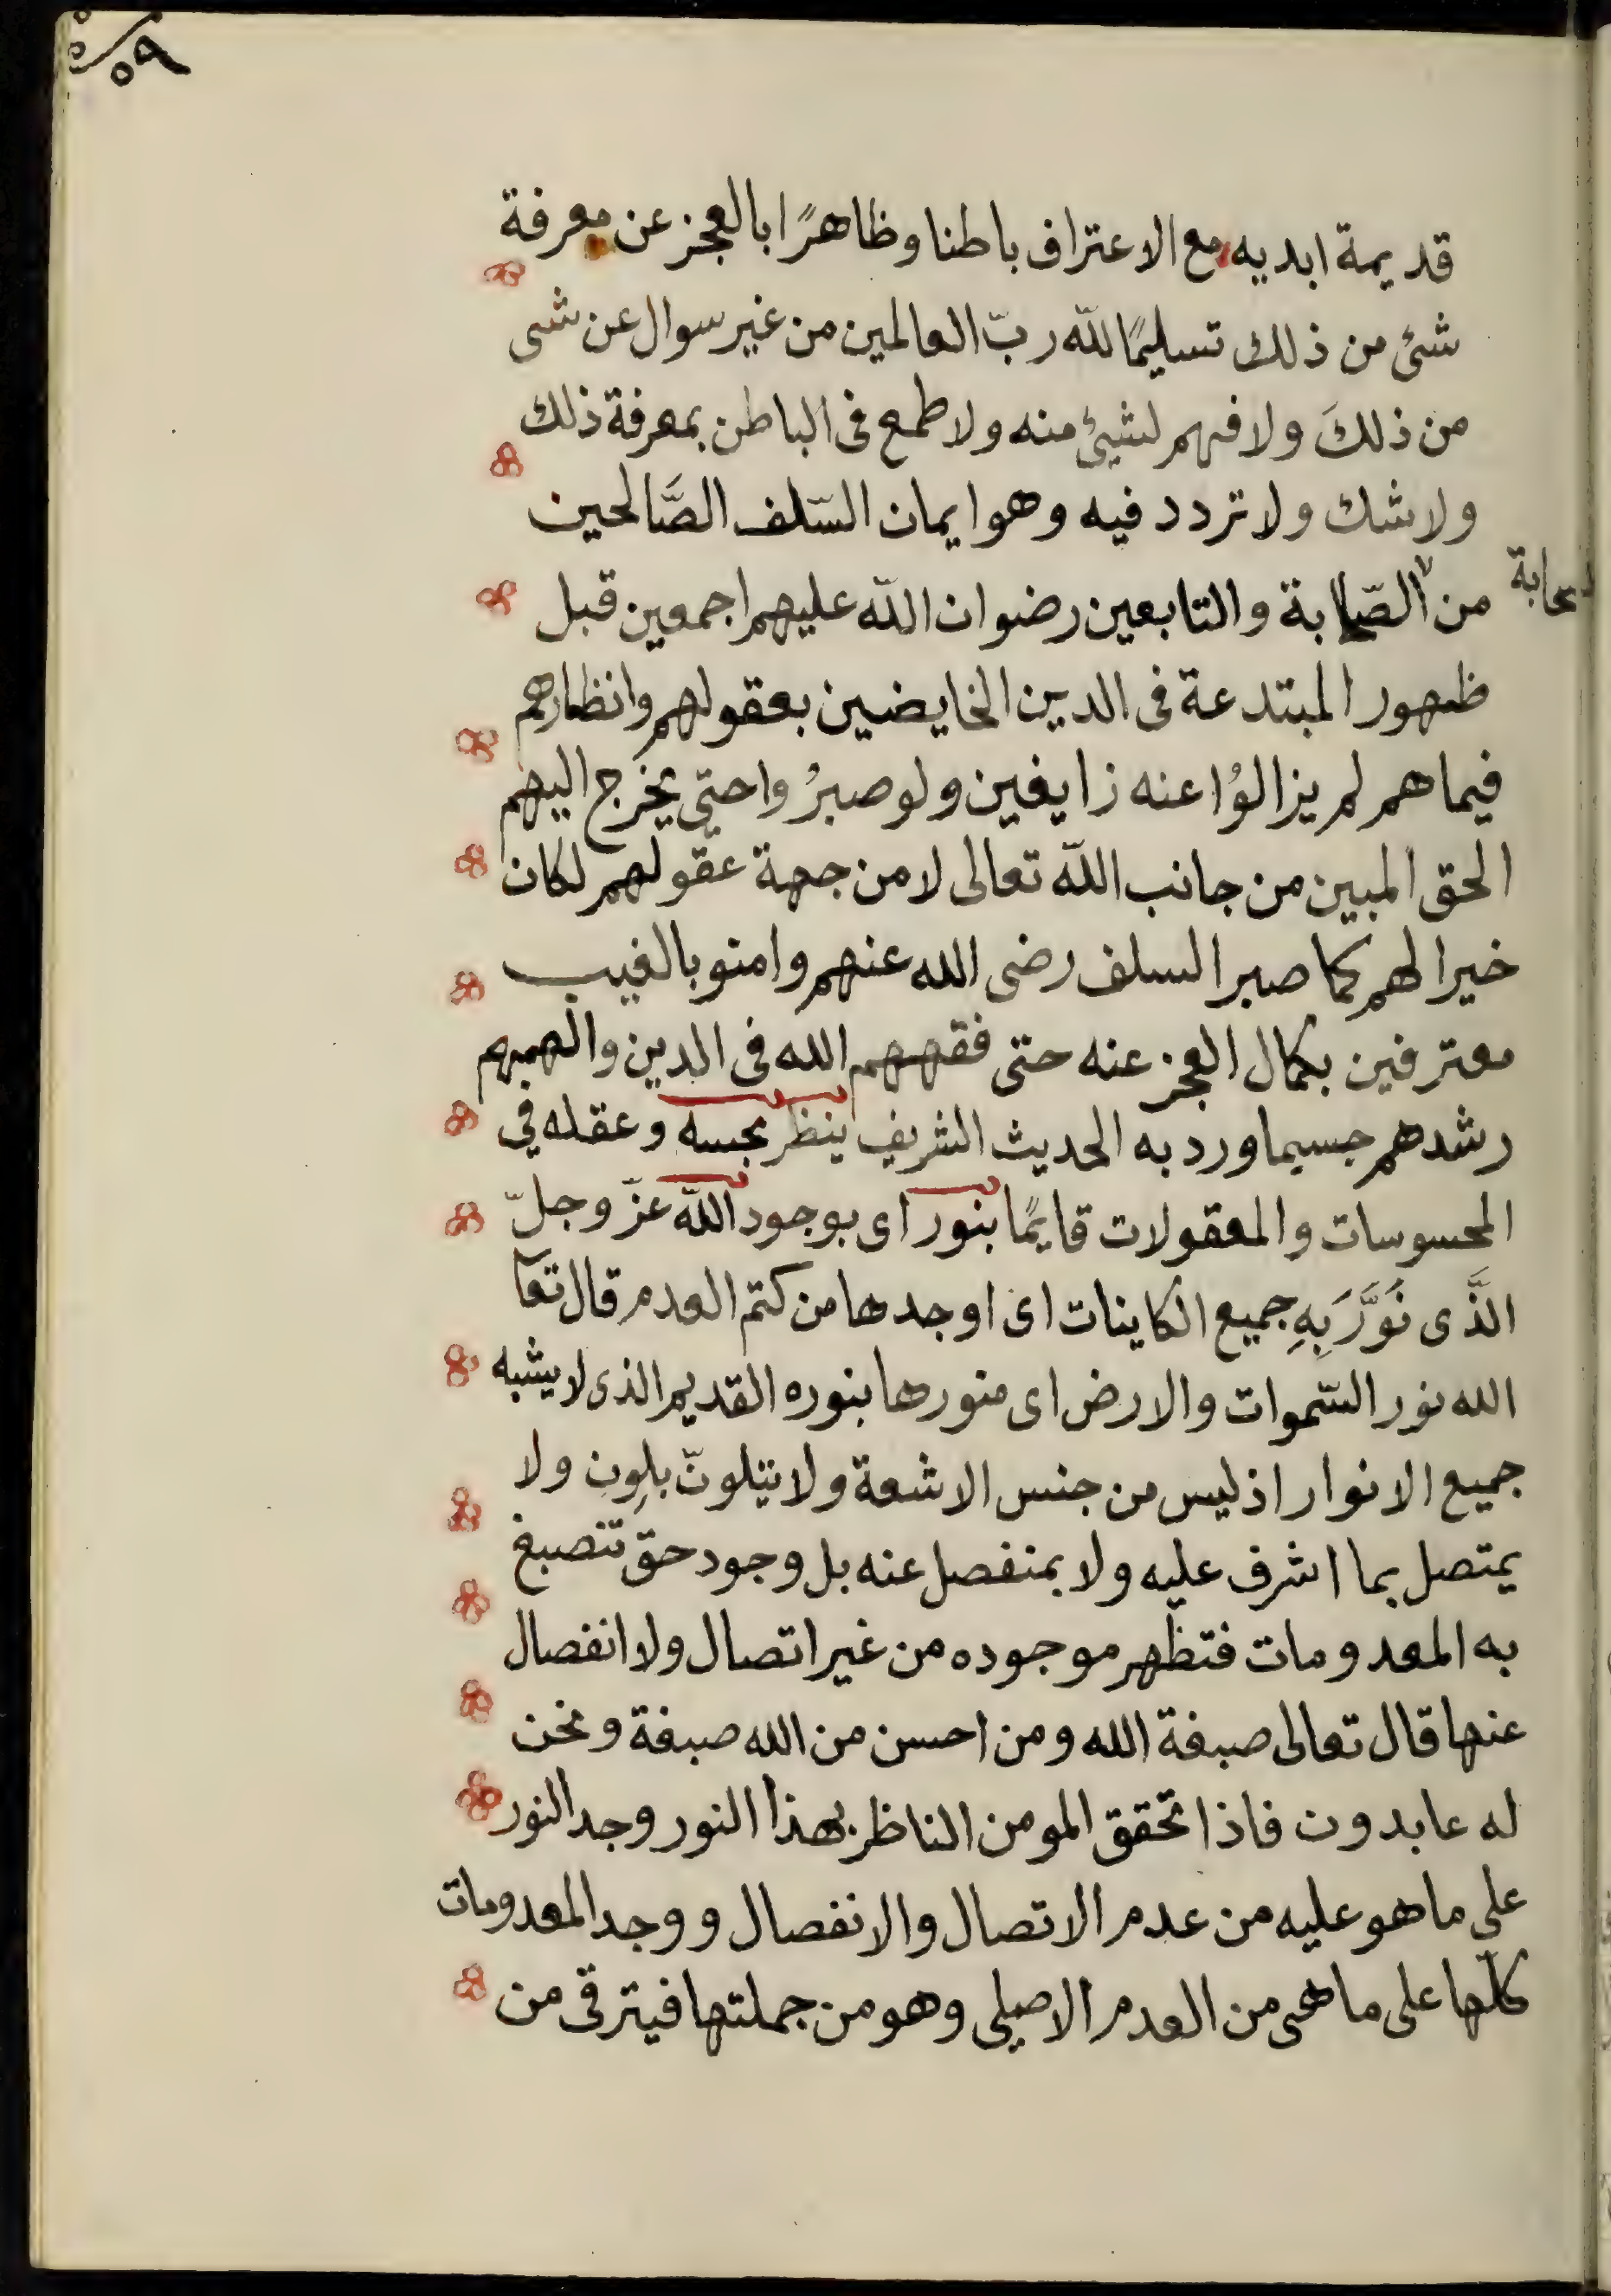 ٥٩
قديمة ابديه مع الاعتراف باطنا وظاهرًا بالعجز عن معرفة
شئ من ذلك تسليمًا للّه ربّ العالمين من غير سوال عن شى
من ذلكَ ولا فهم لشيئ منه ولا طمع فى الباطن بمعرفة ذلك
ولا شك ولا تردد فيه وهو ايمان السّلف الصَّالحين
من الصّحابة والتابعين رضوان اللّه عليهم اجمعين قبل
صحابة
ظهور المبتدعة فى الدين الخايضين بعقولهم وانظارهم
فيما هم لم يزالوُا عنه زايغين ولو صبرُوا حتّى يخرج اليهم
الحق المبين من جانب اللّه تعالى لا من جهة عقولهم لكان
خيرا لهم كما صبر السلف رضى الله عنهم وامنو بالغيب
معترفين بكمال العجز عنه حتى فقههم الله فى الدين والهمهم
رشدهم جسيما ورد به الحديث الشريف ينظر بحسه وعقله في
المحسوسات والمعقولات قايمًا بنور اى بوجود اللّه عزّ وجلّ
الذَّى نَوَّرَ بِهِ جميع الكاينات اى اوجدها من كتم العدم قال تعا
الله نور السّموات والارض اى منورها بنوره القديم الذى لا يشبه
جميع الانوار اذ ليس من جنس الاشعة ولا يتلونّ بلون ولا
يمتصل بما اشرف عليه ولا بمنفصل عنه بل وجود حقّ تنصبغ
به المعدومات فتظهر موجوده من غير اتصال ولا انفصال
عنها قال تعالى صبغة الله ومن احسن من الله صبغة ونحن
له عابدون فاذا تحقق المومن الناظر بهذا النور وجد النور
على ما هو عليه من عدم الاتصال والانفصال ووجد المعدومات
كلّها على ما هى من العدم الاصلى وهو من جملتها فيترقى من